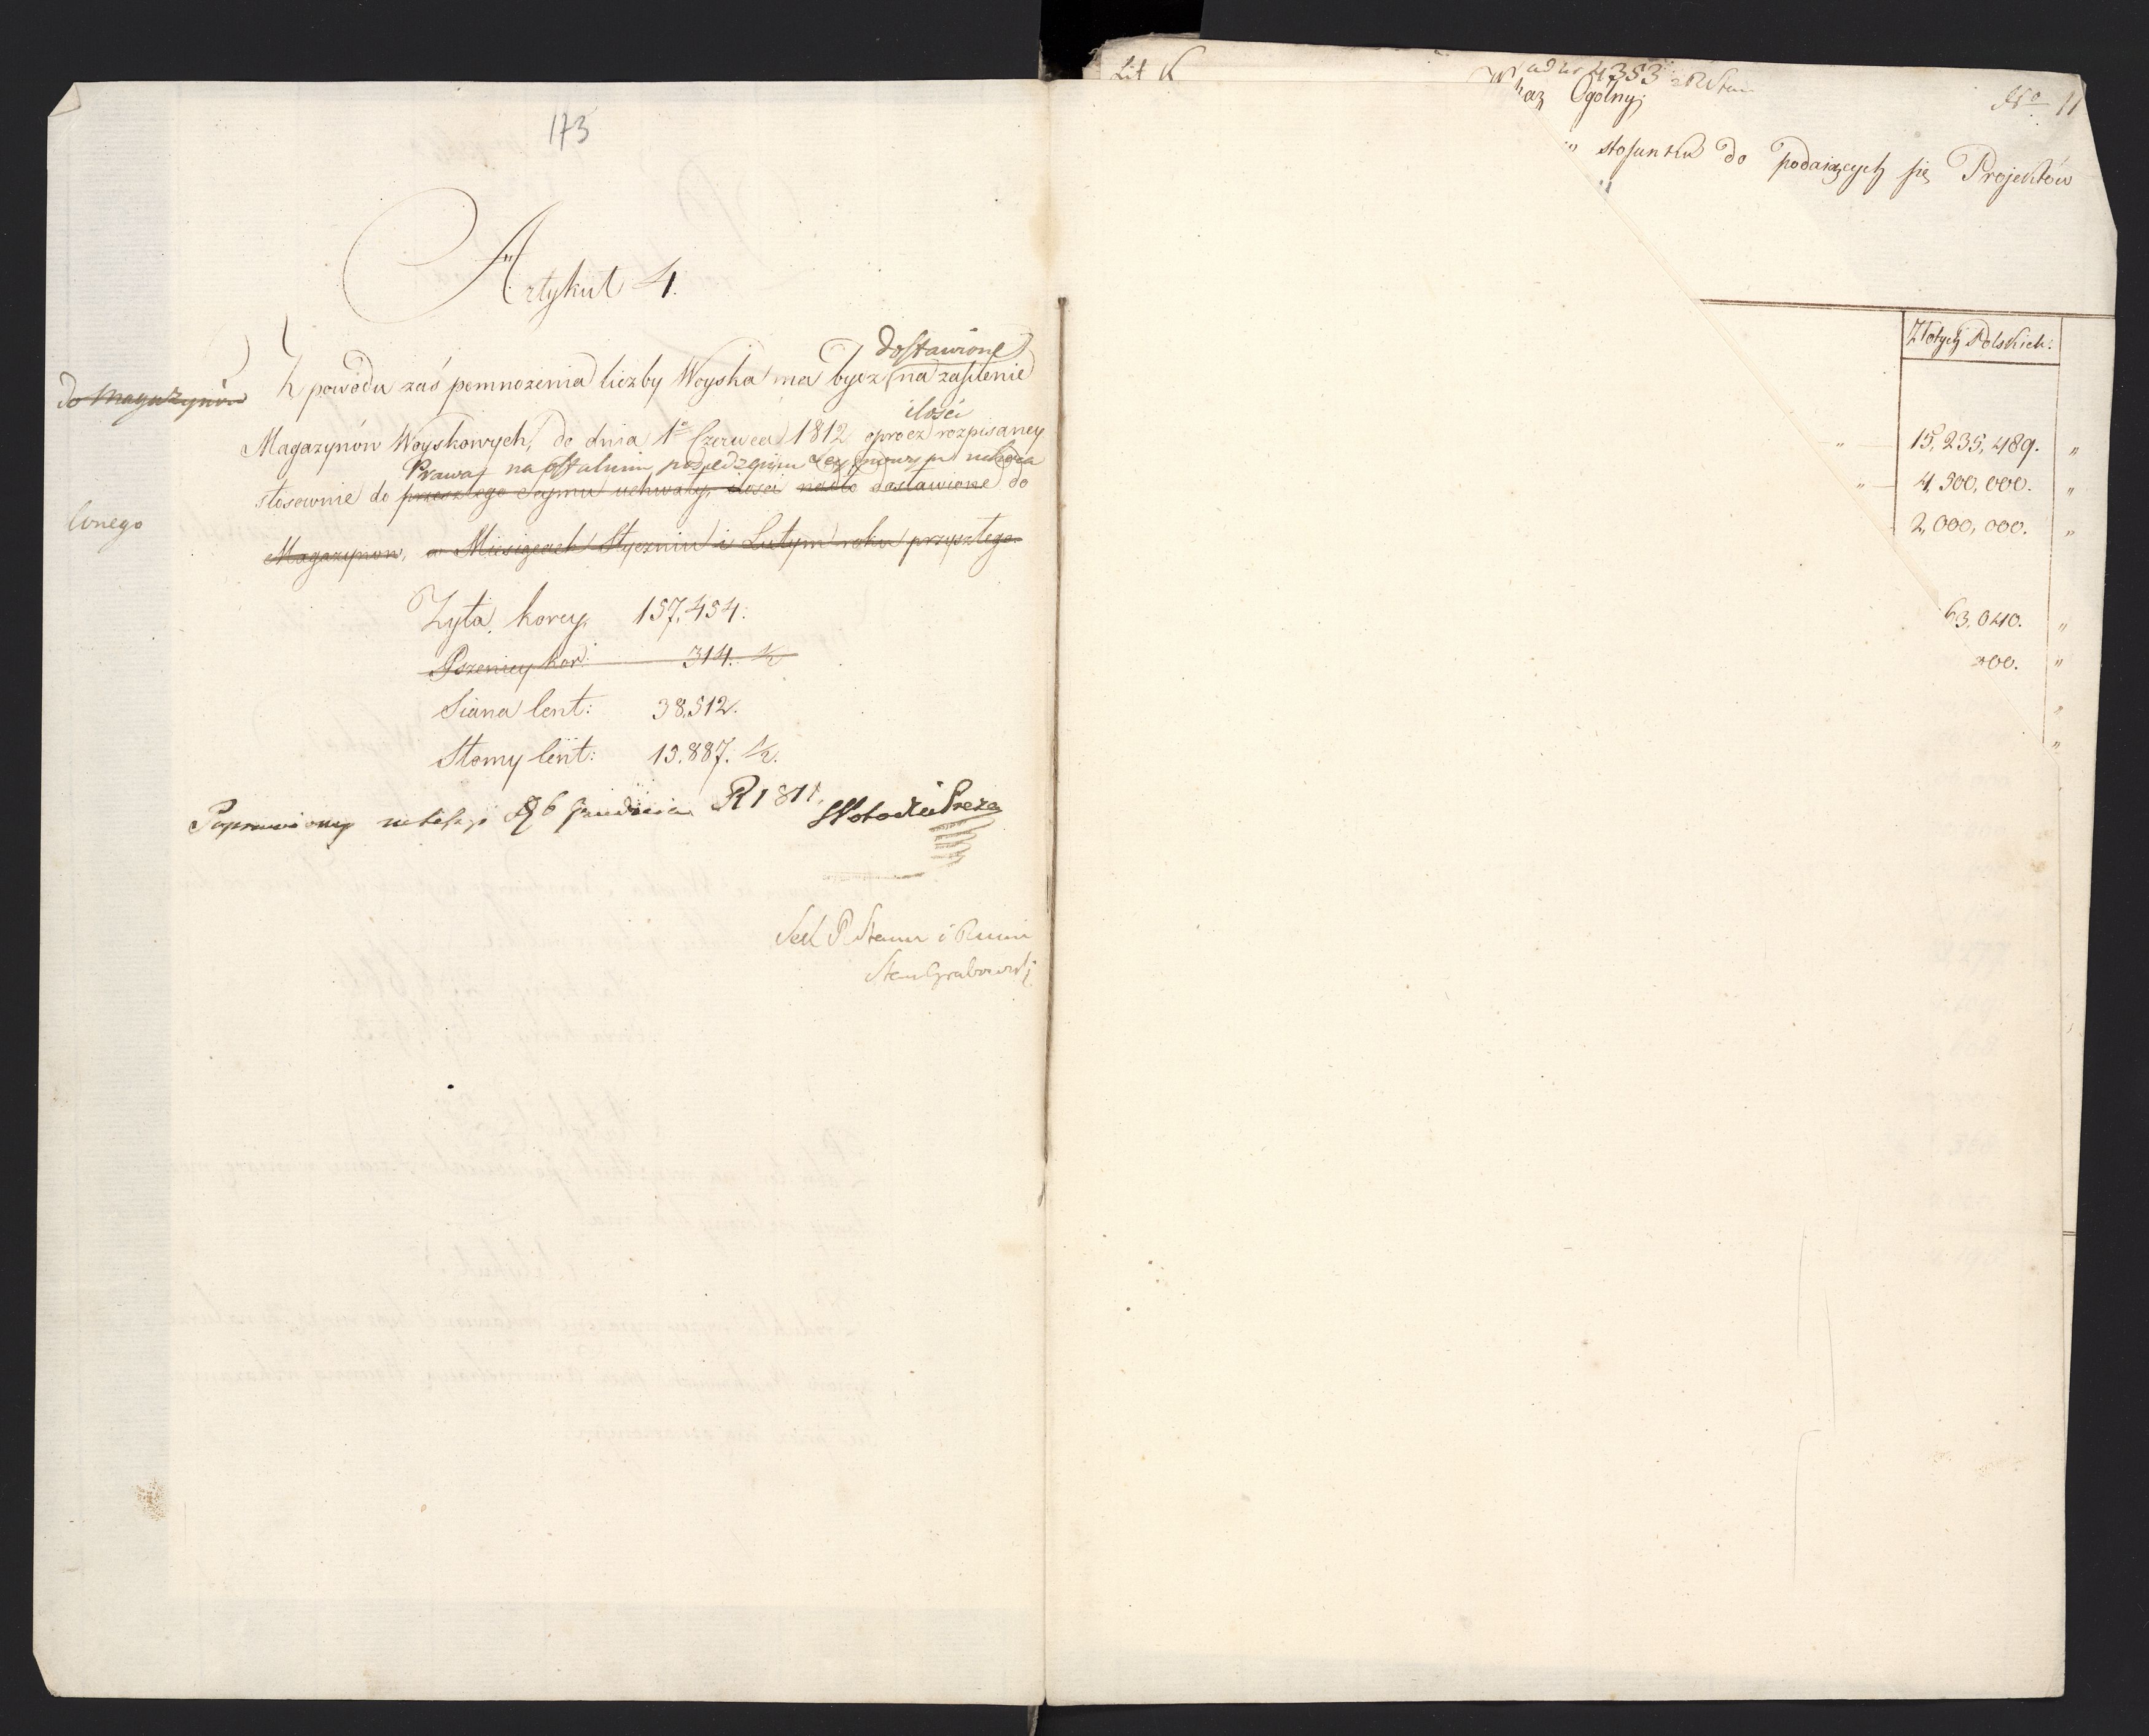 173
Artykuł 4.
dostawione
Z powodu zaś pomnożenia liczby Woyska ma bydz na zasilenie
do Magazynów
ilości
Magazynów Woyskowych, do dnia 1o Czerwca 1812 oprocz rozpisaney
Prawa na ostatnim posiedzeniu Seymowym uchwa
stosownie do przeszłego Seymu uchwały, ilości nadto dostawione do
lonego
Magazynow, w Miesiącach Styczniu i Lutym roku przyszłego
Zyta korcy 157,454.
Pszenicy kor: 314. ½
Siana Cent: 38,512.
Słomy Cent: 13.887. ½.
Poprawiony 26 Grudnia R 1811.
Sek R Stanu i
Stan Grabowski
Lit K
ad nr 4353 R Stan
No 11
Ogólny
stosunku do podaiących się Projektów
Złotych Polskich.
" 15,235,489. "
" 4,500,000. "
2,000,000. "
63,040. "
00. "
"
"